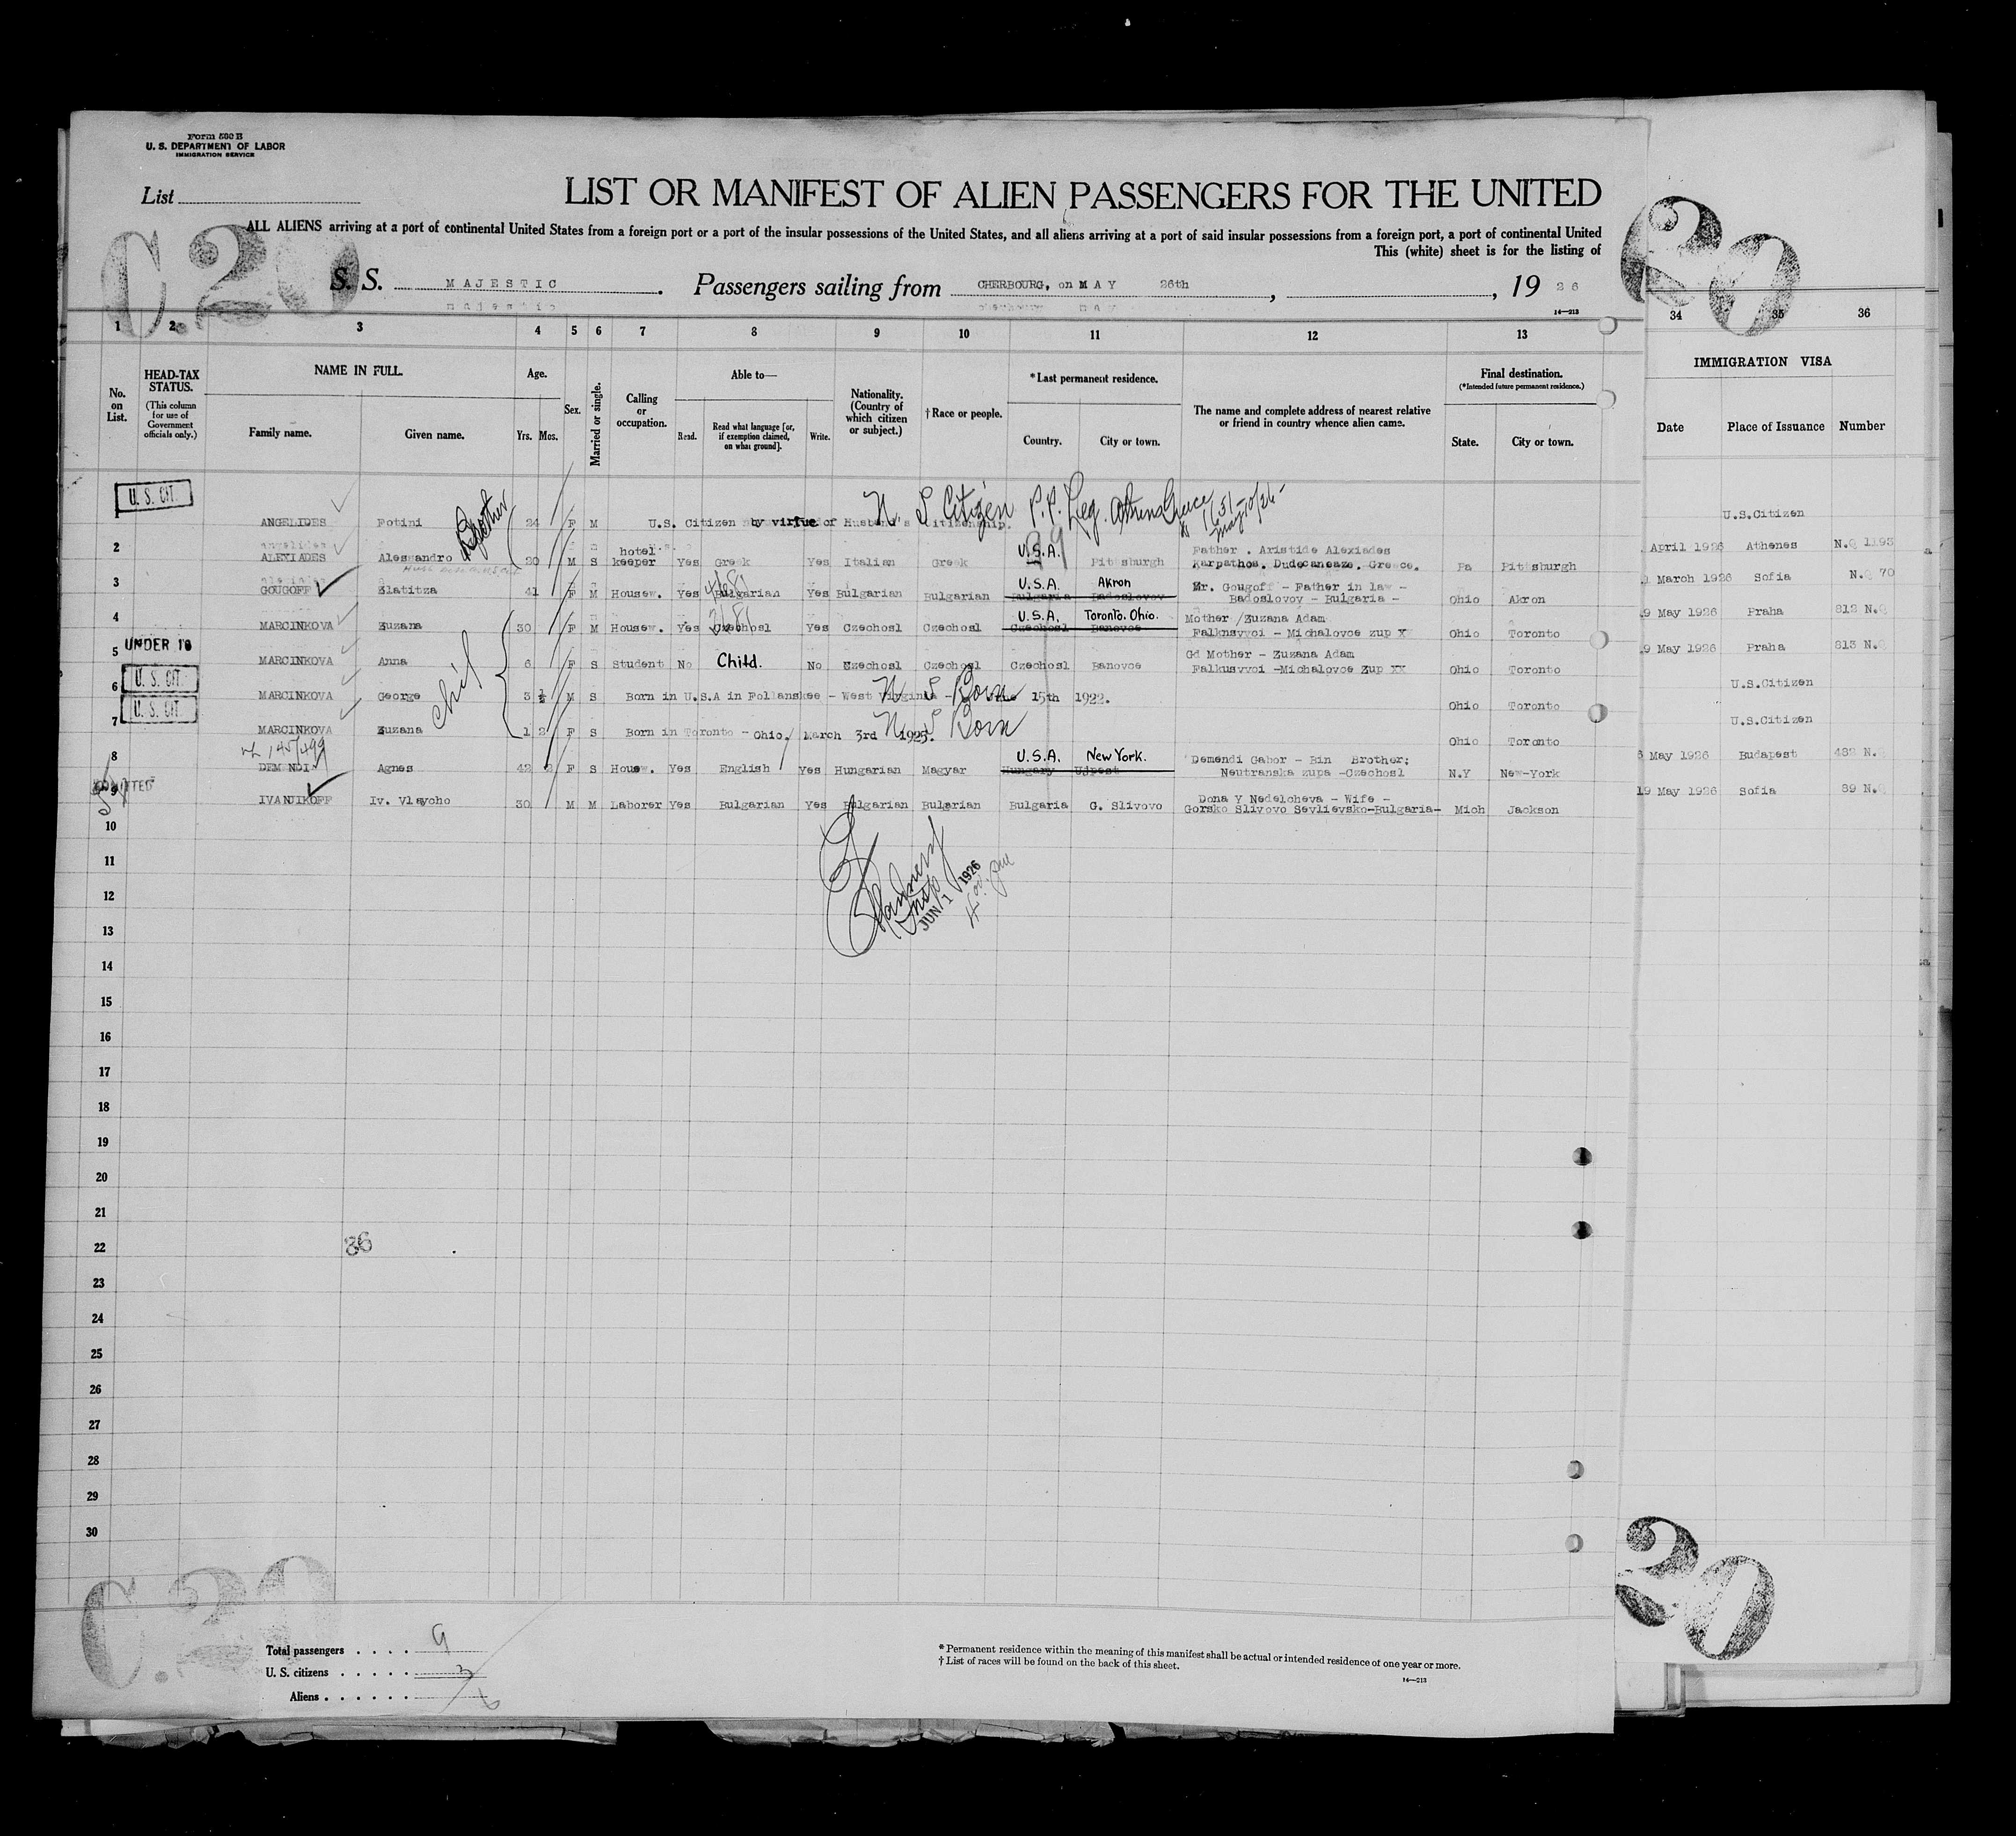 Form 500 B
U. S. DEPARTMENT OF LABOR
IMMIGRATION SERVICE
List
LIST OR MANIFEST OF ALIEN PASSENGERS FOR THE UNITED
ALL ALIENS arriving at a port of continental United States from a foreign port or a port of the insular possessions of the United States, and all aliens arriving at a port of said insular possessions from a foreign port, a port of continental United
This (white) sheet is for the listing of
C.20
20
S. S. MAJESTIC . Passengers sailing from CHERBOURG, on MAY 26th , , 19 26
14—213
1 2 3 4 5 6 7 8 9 10 11 12 13 34 35 36
No. on List.
HEAD-TAX STATUS.
(This column for use of Government officials only.)
NAME IN FULL.
Family name. Given name.
Age.
Yrs. Mos.
Sex.
Married or single.
Calling or occupation.
Able to—
Read. Read what language [or, if exemption claimed, on what ground]. Write.
Nationality. (Country of which citizen or subject.)
†Race or people.
*Last permanent residence.
Country. City or town.
The name and complete address of nearest relative or friend in country whence alien came.
Final destination.
(*Intended future permanent residence.)
State. City or town.
IMMIGRATION VISA
Date Place of Issuance Number
U. S. CIT.
1 ANGELIDES Fotini 24 F M U.S. Citizen by virtue of Husband's Citizenship. U.S.Citizen
U S Citizen P.P. Leg. Athens Greece
Brother
2 ALEXIADES Alessandro 20 M S hotel keeper Yes Greek Yes Italian Greek U.S.A. Pittsburgh Father . Aristide Alexiades Karpathos. Dudecaneaze. Greece. Pa Pittsburgh April 1926 Athenes N.Q 1193
3 GOUGOFF Zlatitza 41 F M Housew. Yes Bulgarian Yes Bulgarian Bulgarian U.S.A. Akron Bulgaria Badoslovov Mr. Gougoff - Father in law - Badoslovov - Bulgaria - Ohio Akron March 1926 Sofia N.Q 70
4 MARCINKOVA Zuzana 30 F M Housew. Yes Czechosl Yes Czechosl Czechosl U.S.A. Toronto. Ohio. Czechosl Banovce Mother /Zuzana Adam Falknsvvoi - Michalovce zup X Ohio Toronto 9 May 1926 Praha 812 N.Q
UNDER 16
5 MARCINKOVA Anna 6 F S Student No Child. No Czechosl Czechosl Czechosl Banovce Gd Mother - Zuzana Adam Falkusvvoi -Michalovce Zup XX Ohio Toronto 9 May 1926 Praha 813 N.Q
U. S. CIT.
6 MARCINKOVA George 3 ½ M S Born in U.S.A in Follanskee - West Virginia - June 15th 1922. Ohio Toronto U.S.Citizen
U S Born
U. S. CIT.
7 MARCINKOVA Zuzana 1 2 F S Born in Toronto - Ohio. March 3rd 1925. Ohio Toronto U.S.Citizen
U S Born
8 DEMENDI Agnes 42 F S Housw. Yes English Yes Hungarian Magyar U.S.A. New York. Hungary Ujpest Demendi Gabor - Bin Brother; Neutranska zupa -Czechosl N.Y New-York 6 May 1926 Budapest 482 N.Q
ADMITTED
9 IVANJIKOFF Iv. Vlaycho 30 M M Laborer Yes Bulgarian Yes Bulgarian Bulgarian Bulgaria G. Slivovo Dona Y Nedelcheva - Wife - Gorsko Slivovo Sevlievsko-Bulgaria- Mich Jackson 19 May 1926 Sofia 89 N.Q
JUN 1 1926
10
11
12
13
14
15
16
17
18
19
20
21
22
23
24
25
26
27
28
29
30
C.20
20
Total passengers . . . . 9
U. S. citizens . . . . . 3
Aliens . . . . . . 6
* Permanent residence within the meaning of this manifest shall be actual or intended residence of one year or more.
† List of races will be found on the back of this sheet.
14—213